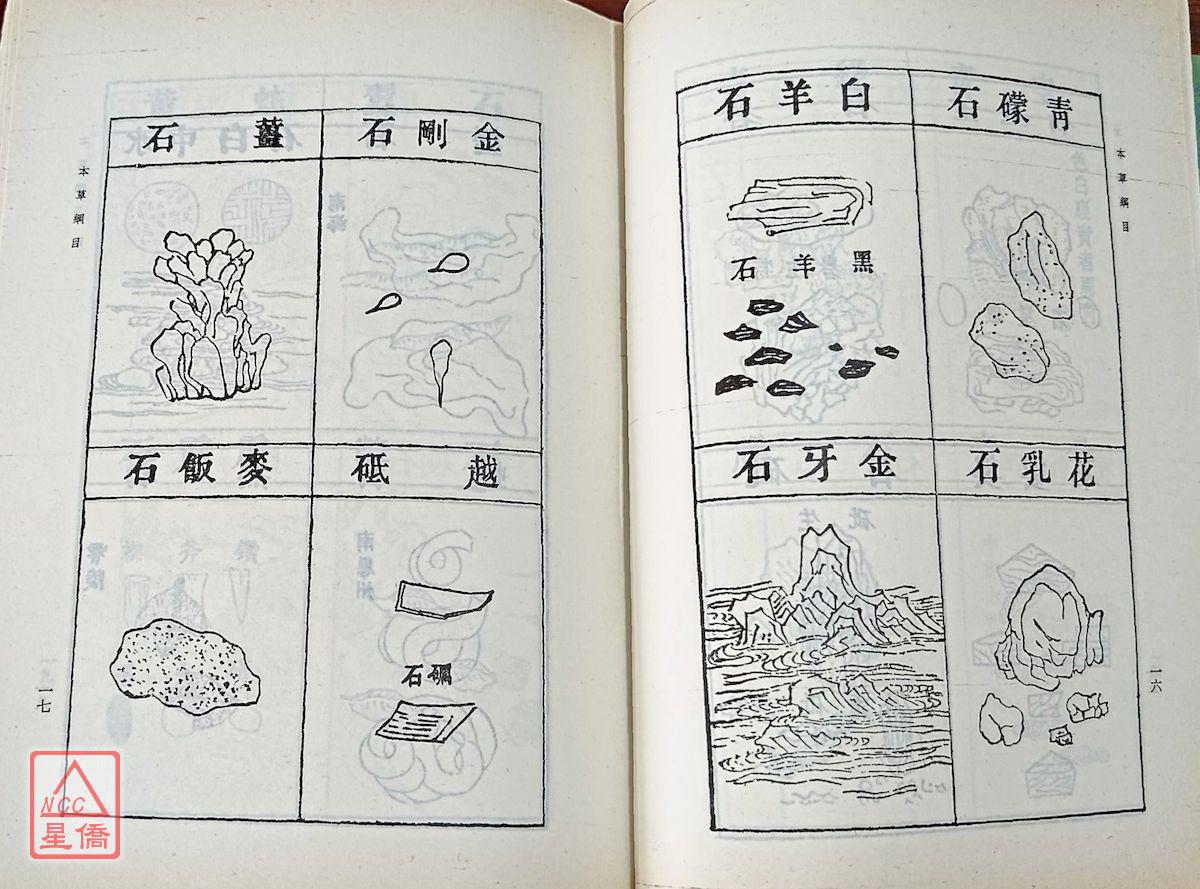 本草綱目
青礞石
白羊石
黑羊石
花乳石
金牙石
一六
金剛石
薑石
越砥
礪石
麥飯石
本草綱目
一七
NCC
星僑